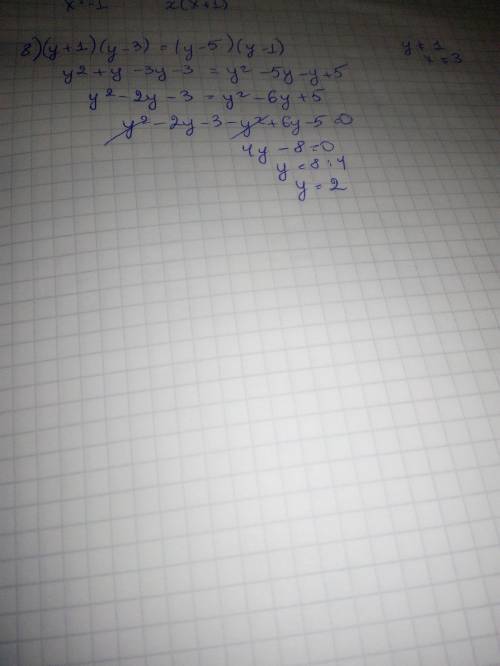 x = -1 x(x+1)
8) (y+1)(y-3) = (y-5)(y-1)
y² + y - 3y - 3 = y² - 5y - y + 5
y² - 2y - 3 = y² - 6y + 5
y² - 2y - 3 - y² + 6y - 5 = 0
4y - 8 = 0
y = 8 : 4
y = 2
y ≠ 1
x = 3